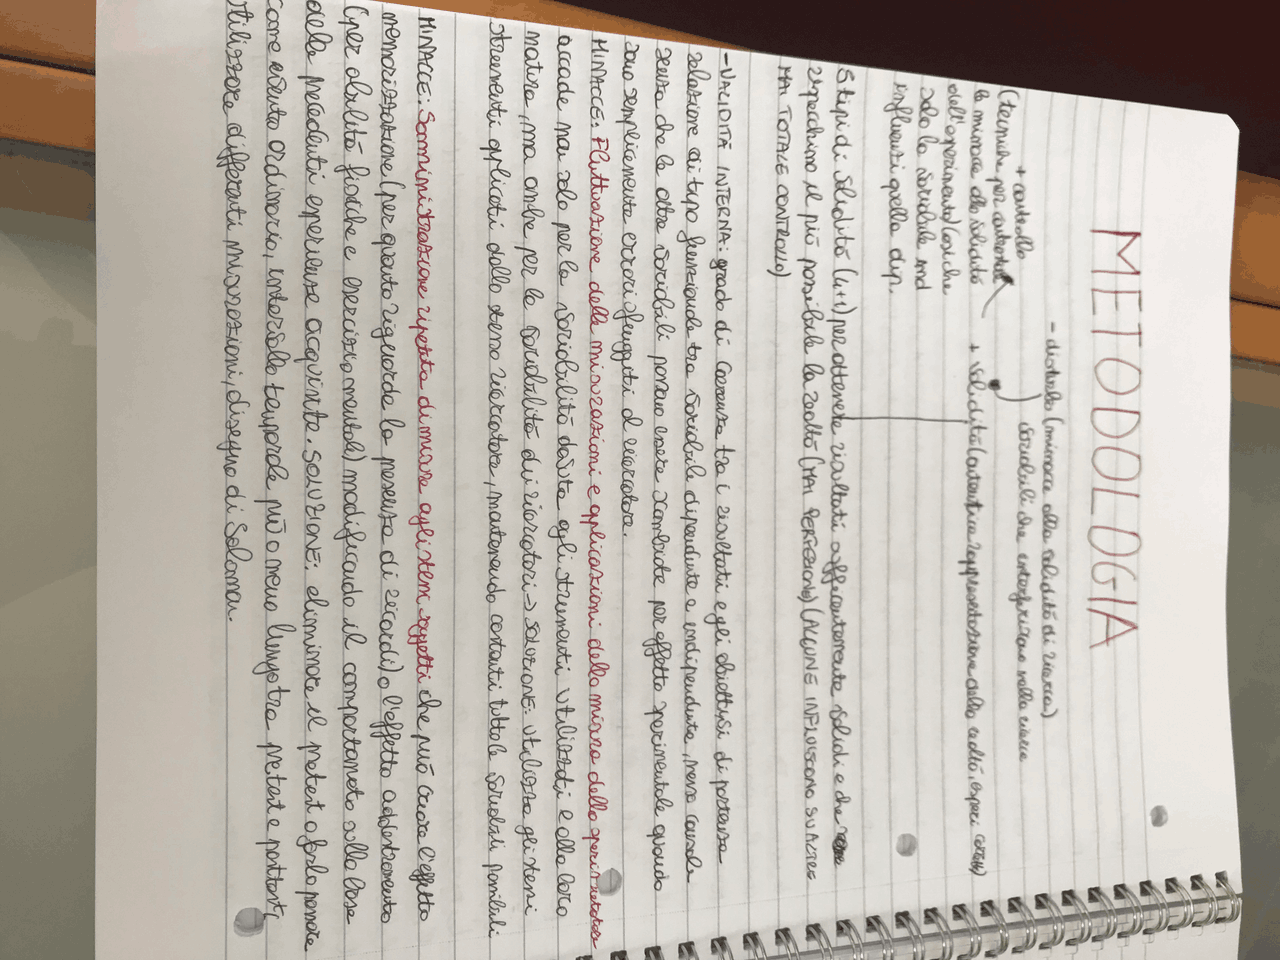 METODOLOGIA
- disturbo (minacce alla validità di ricerca)
variabili che interferiscono nella ricerca
+ controllo
(tecniche per
le minacce alla validità
dell'esperimento) (anziche
solo la variabile ind
influenzi quella dip.
+ validità (autentica rappresentazione della realtà, aspetti
5 tipi di validità (4+1) per ottenere risultati sufficientemente validi e che
rispecchino il più possibile la realtà (MAI PERFEZIONE) (ALCUNE INFLUISCONO SU ALTRE
MAI TOTALE CONTROLLO)
- VALIDITÀ INTERNA: grado di coerenza tra i risultati e gli obiettivi di partenza
relazione di tipo funzionale tra variabile dipendente e indipendente, nesso causale
senza che le altre variabili possano essere scambiate per effetto sperimentale quando
sono semplicemente errori sfuggiti al ricercatore.
MINACCE: Fluttuazione delle misurazioni e applicazioni della misura dello sperimentatore
accade non solo per la variabilità dovuta agli strumenti utilizzati e alla loro
natura, ma anche per la variabilità di ricercatori → SOLUZIONE: utilizzo gli stessi
strumenti applicati dallo stesso ricercatore, mantenendo costanti tutte le variabili possibili
MINACCE: Somministrazione ripetuta di misure agli stessi soggetti che può creare l'effetto
memorizzazione (per quanto riguarda la presenza di ricordi) o l'effetto addestramento
(per abilità fisiche e esercizio mentale) modificando il comportamento sulla base
delle precedenti esperienze acquisite. SOLUZIONE: eliminare il pretest o farlo passare
come evento ordinario, intervallo temporale più o meno lungo tra pretest e posttest,
utilizzare differenti misurazioni, disegno di Solomon.